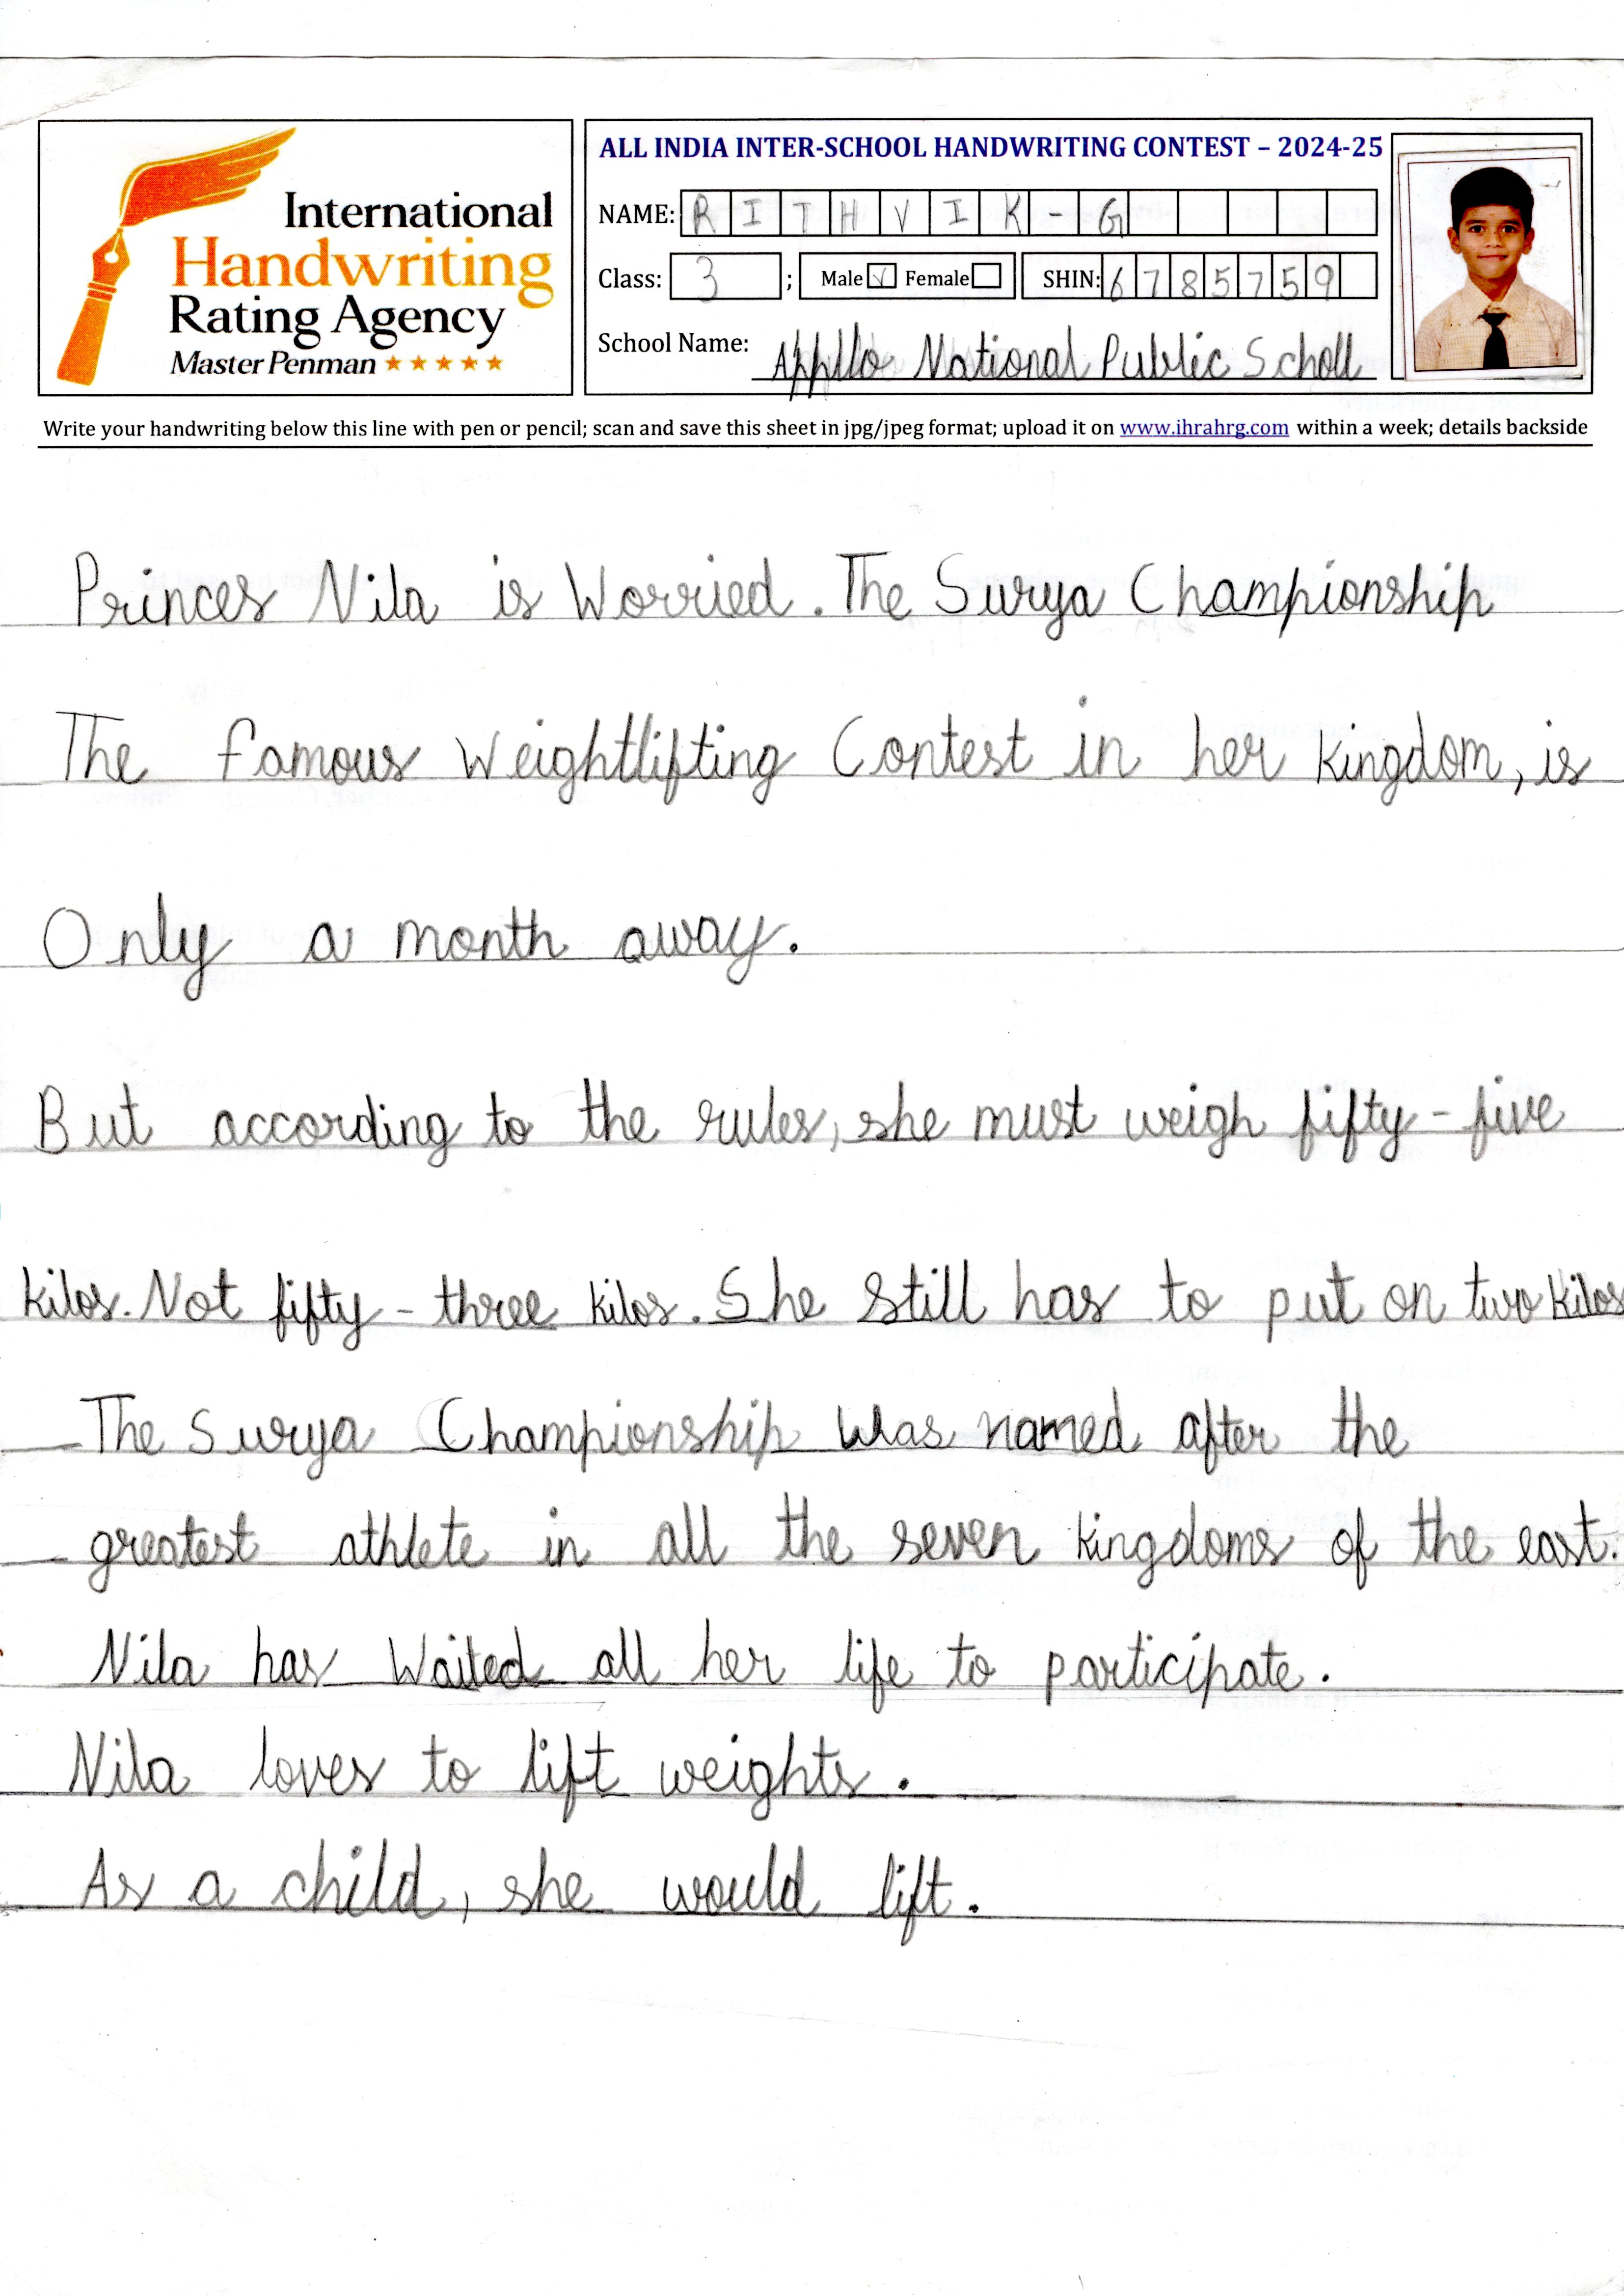 International
Handwriting
Rating Agency
Master Penman ★★★★★
ALL INDIA INTER-SCHOOL HANDWRITING CONTEST – 2024-25
NAME: RITHVIK-G
Class: 3 ; Male ✓ Female SHIN: 6785759
School Name: Appllo National Public Scholl
Write your handwriting below this line with pen or pencil; scan and save this sheet in jpg/jpeg format; upload it on www.ihrahrg.com within a week; details backside
Princes Nila is Worried. The Surya Championship
The famous Weightlifting Contest in her kingdom, is
Only a month away.
But according to the rules, she must weigh fifty-five
kilos. Not fifty-three kilos. She still has to put on two kilos
The Surya Championship Was named after the
greatest athlete in all the seven kingdoms of the east.
Nila has Waited all her life to participate.
Nila loves to lift weights.
As a child, she would lift.